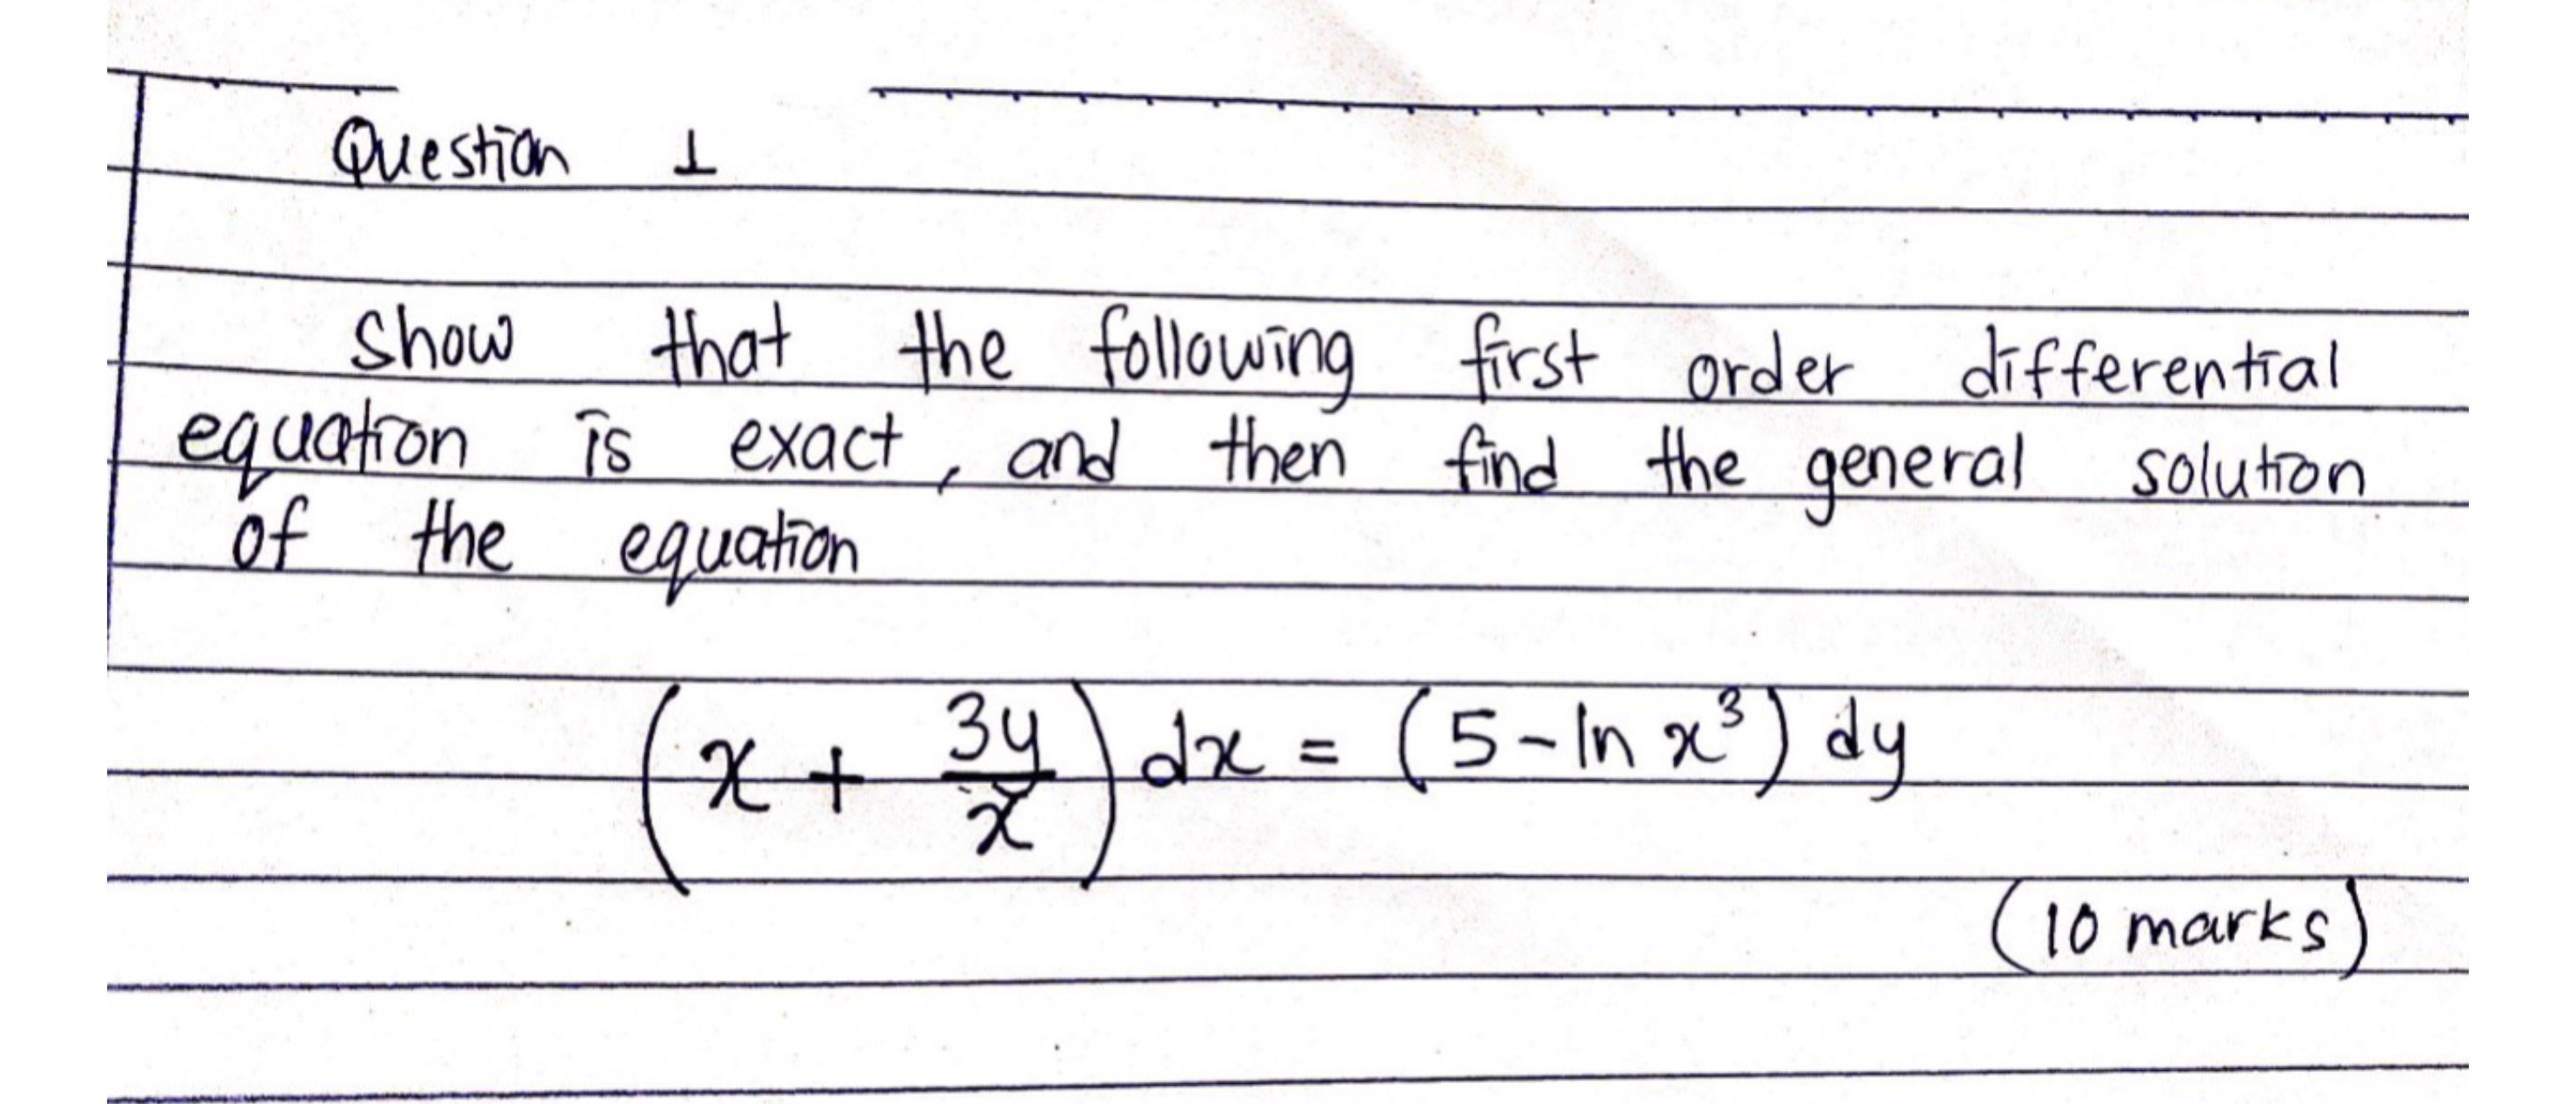 Question 1
Show that the following first order differential
equation is exact, and then find the general solution
of the equation
(x + 3y/x) dx = (5 - ln x³) dy
(10 marks)